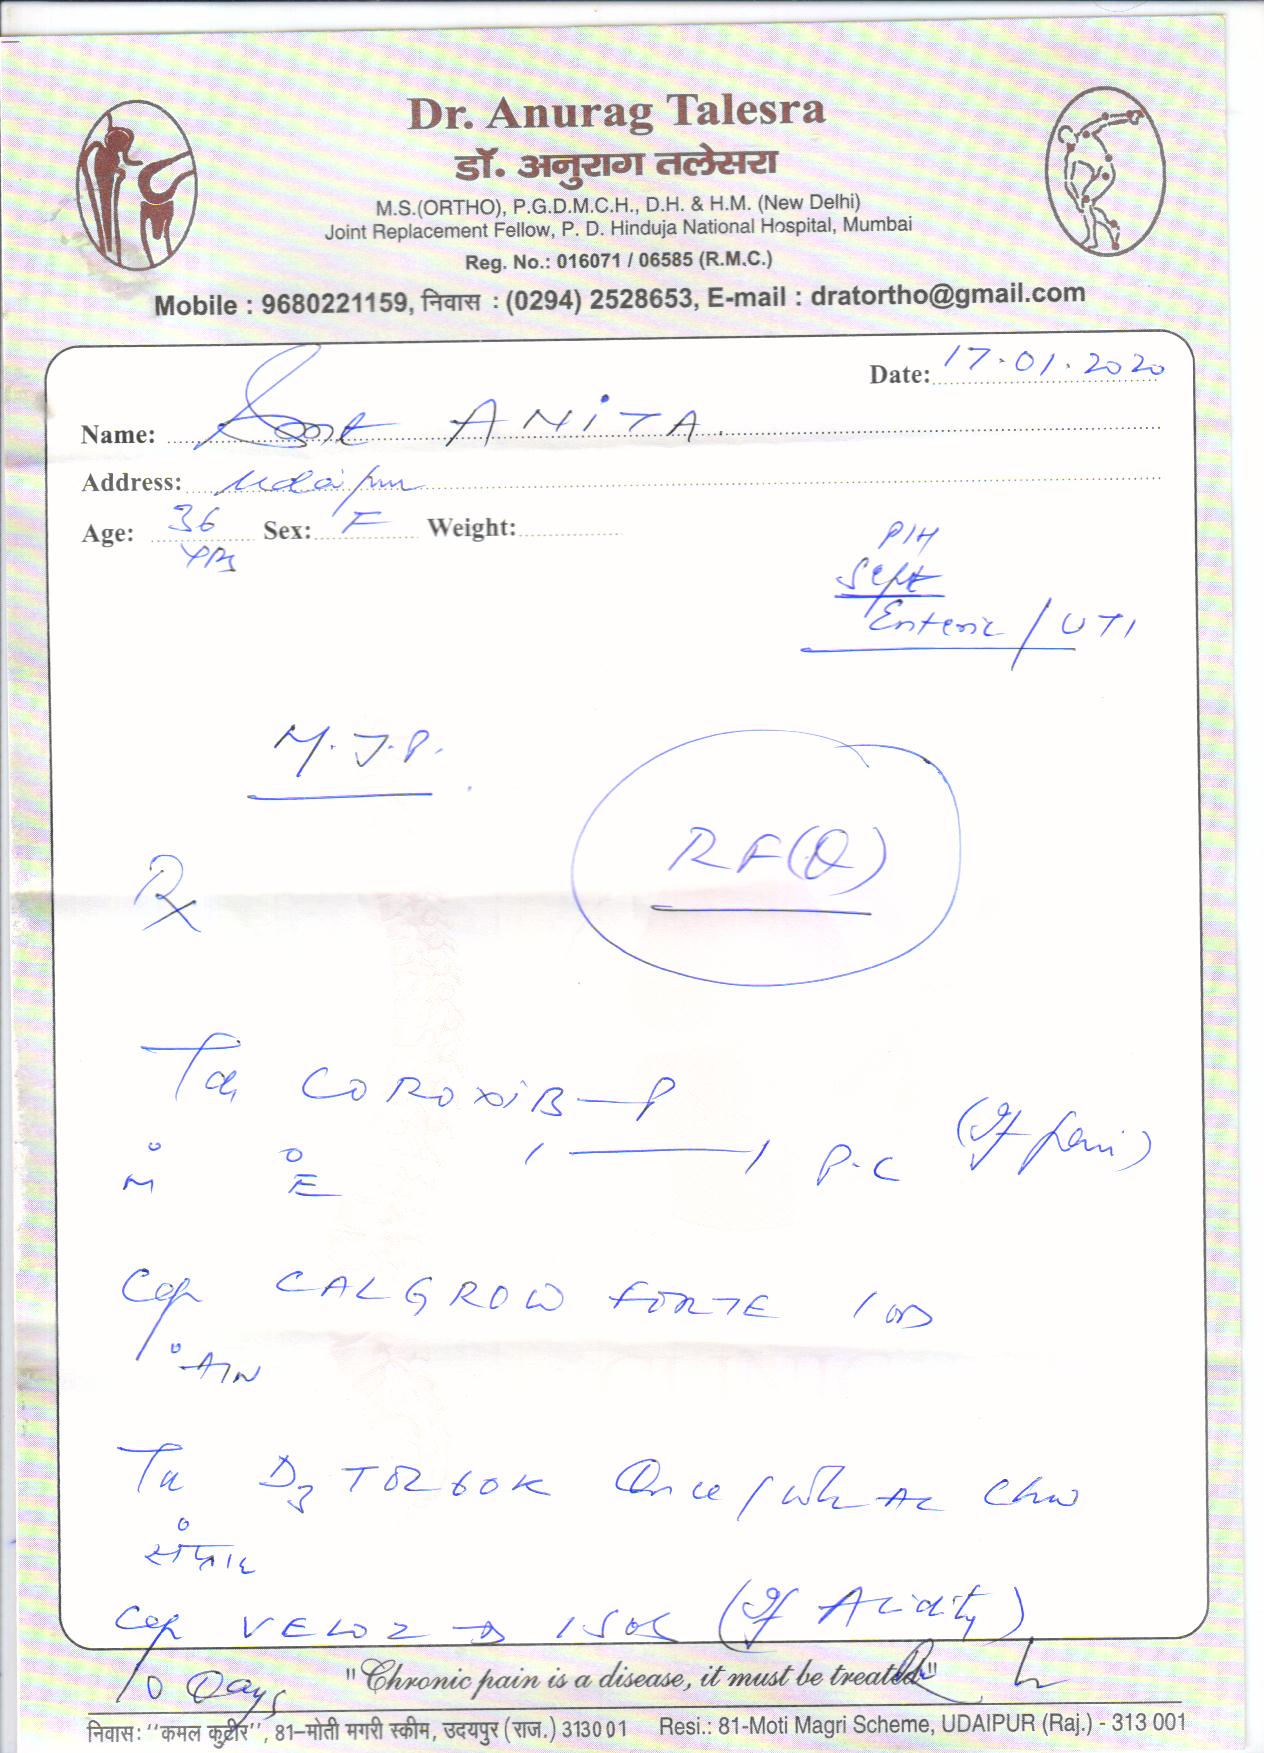 Dr. Anurag Talesra
डॉ. अनुराग तलेसरा
M.S.(ORTHO), P.G.D.M.C.H., D.H. & H.M. (New Delhi)
Joint Replacement Fellow, P. D. Hinduja National Hospital, Mumbai
Reg. No.: 016071 / 06585 (R.M.C.)
Mobile : 9680221159, निवास : (0294) 2528653, E-mail : dratortho@gmail.com
Date: 17.01.2020
Name: ANITA
Address: Udaipur
Age: 36 Yrs Sex: F Weight:
P/H
Enteric / UTI
M.J.P.
RF(Q)
Rx
COROXIB-P
M E 1 — 1 P.C (If pain)
Cap CALGROW FORTE 1 OD
D3 TOR 60K Once /
Cap VELOZ D 1 SOS (If Acidity)
10 Days
"Chronic pain is a disease, it must be treated"
निवास: "कमल कुटीर", 81–मोती मगरी स्कीम, उदयपुर (राज.) 313001 Resi.: 81-Moti Magri Scheme, UDAIPUR (Raj.) - 313 001